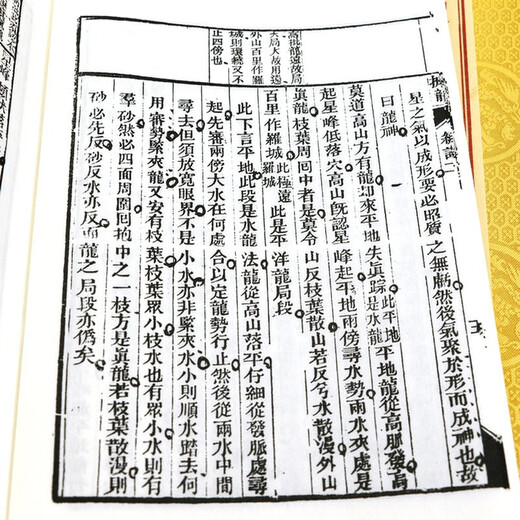 撼龍
五
外山百里作羅
城則環繞又不
止四傍也
星之氣以成形要必照廣之無虧然後氣聚於形而成神也故
曰龍神
莫道高山方有龍却來平地失眞踪此平地是水龍平地龍從高脈發高
起星峰低落穴高山既認星峰起平地兩傍尋水勢兩水夾處是
眞龍枝葉周回中者是莫令山反枝葉散山若反兮水散漫外山
百里作羅城此極遠羅城此是平洋龍局段
此下言平地此段是水龍法龍從高山落平仔細從發脈處尋
起先審兩傍大水在何處合以定龍勢行止然後從兩水中間
尋去但須放寬眼界不是小水亦非緊夾水小則順水踏去何
用審勢緊夾龍又安有枝葉枝葉眾小枝水也有眾小水則有
羣砂然必四面周圍回抱中之一枝方是眞龍若枝葉散漫則
砂必先反砂反水亦反而龍之局段亦僞矣